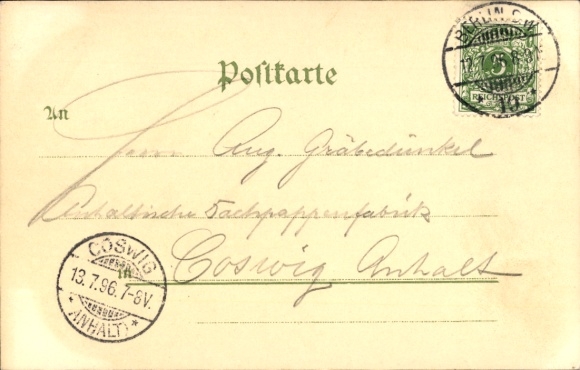 BERLIN S.W.
12.7.96
5
REICHSPOST
Postkarte
An
Herrn Aug. Gräbedünkel
Anhaltische Dachpappenfabrik
in Coswig Anhalt
COSWIG
13.7.96.7-8V.
* (ANHALT) *